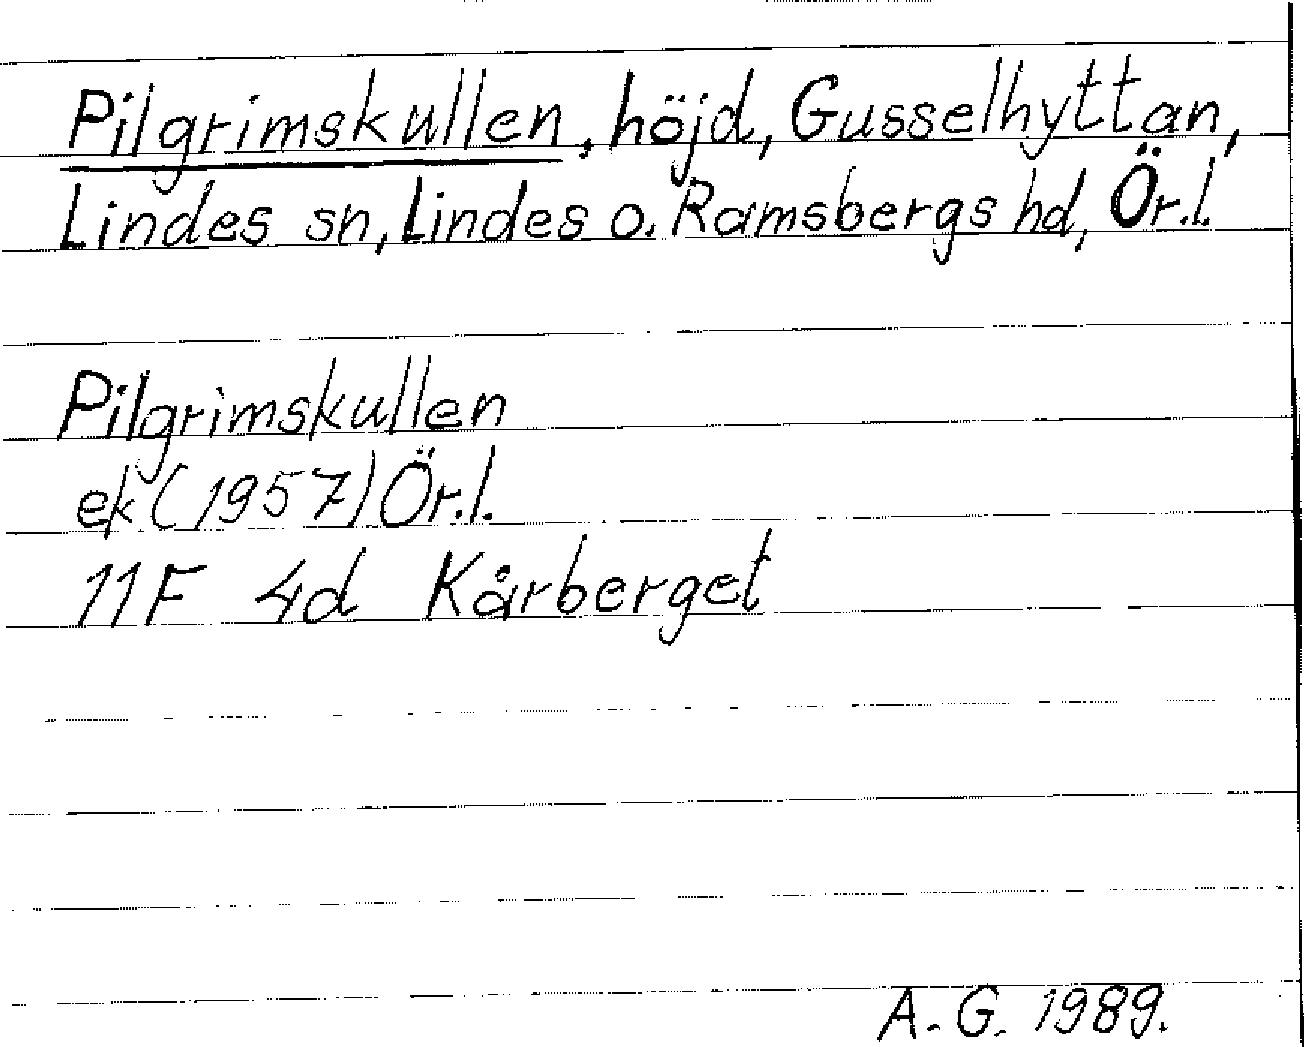 Pilgrimskullen, höjd, Gusselhyttan,
Lindes sn, Lindes o. Ramsbergs hd, Ör.l.
Pilgrimskullen
ek (1957) Ör.l.
11F 4d Kårberget
A. G. 1989.